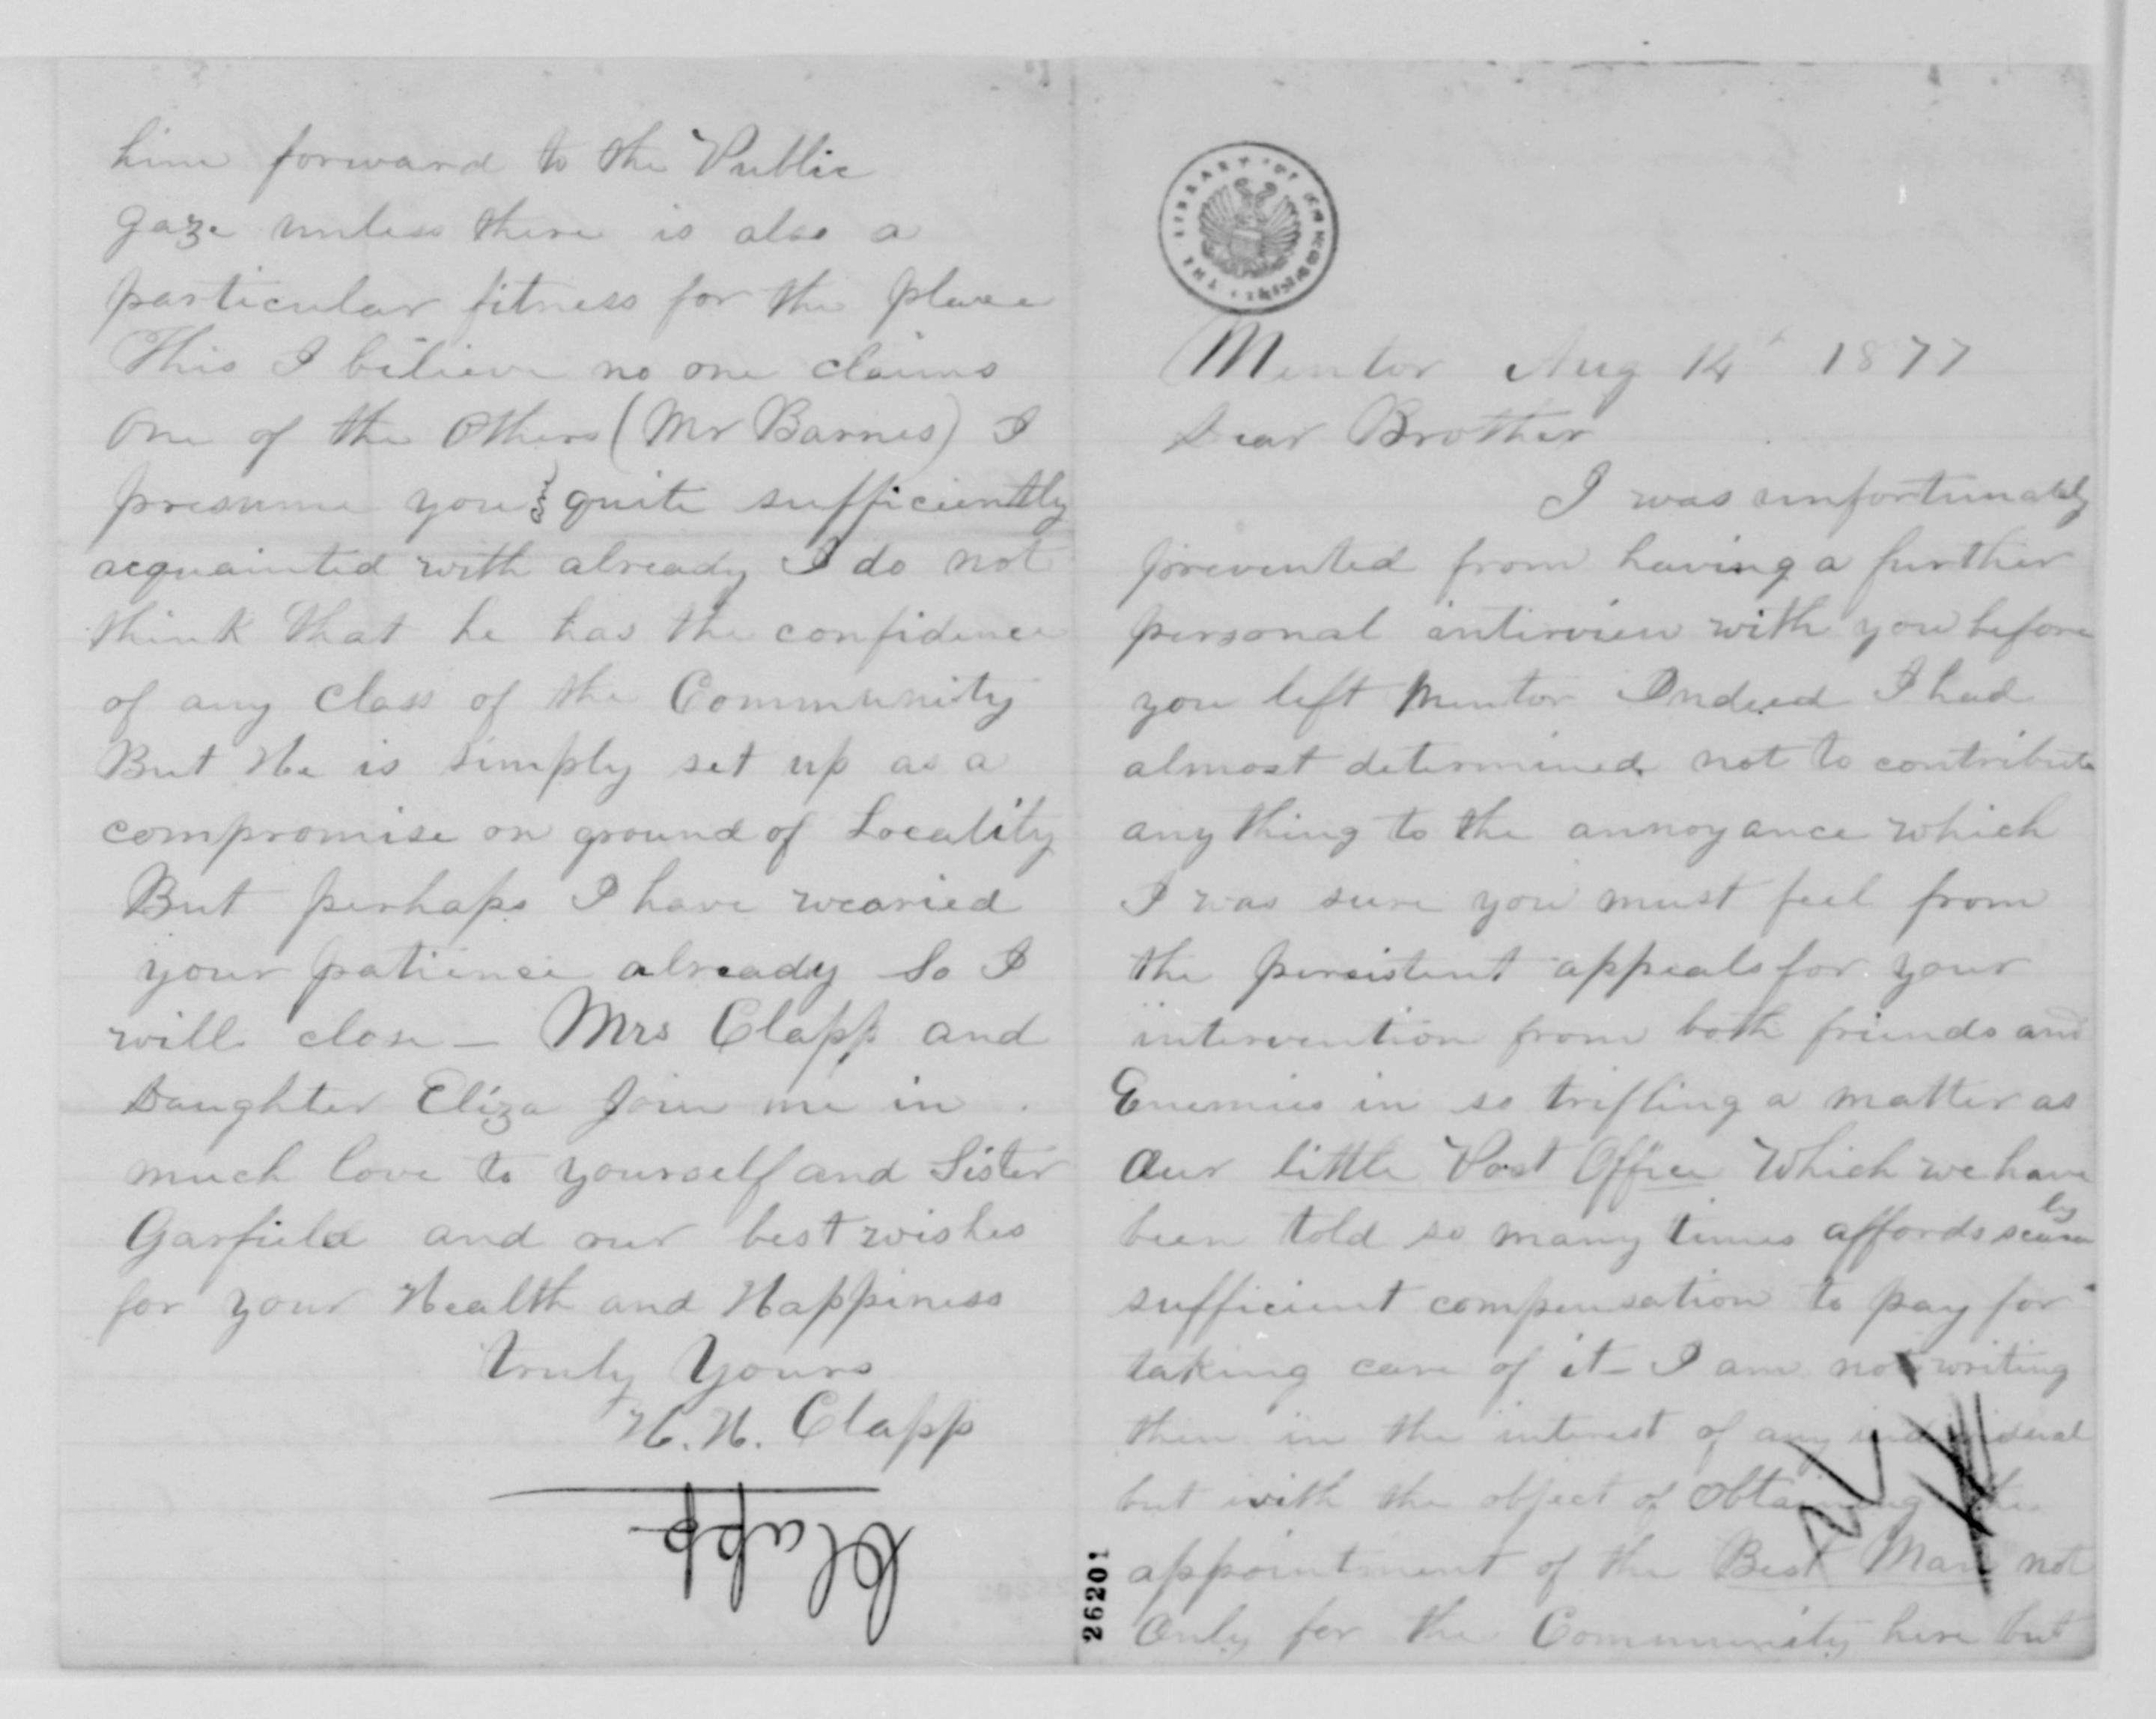 him forward to the Public
gaze unless there is also a
particular fitness for the place
This I believe no one claims
One of the Others (Mr Barnes) I
presume you are quite sufficiently
acquainted with already I do not
think that he has the confidence
of any Class of the Community
But He is simply set up as a
compromise on ground of Locality
But perhaps I have wearied
your patience already So I
will close — Mrs Clapp and
Daughter Eliza Join me in
much love to yourself and Sister
Garfield and our best wishes
for your Health and Happiness
Truly Yours
H. N. Clapp
Clapp
THE LIBRARY OF CONGRESS
Mentor Aug 14th 1877
Dear Brother
I was unfortunately
prevented from having a further
personal interview with you before
you left Mentor Indeed I had
almost determined not to contribute
any thing to the annoyance which
I was sure you must feel from
the persistent appeals for your
intervention from both friends and
Enemies in so trifling a matter as
Our little Post Office Which we have
been told so many times affords scarcely
sufficient compensation to pay for
taking care of it — I am not writing
then in the interest of any individual
but with the object of Obtaining the
appointment of the Best Man not
Only for the Community here but
26201